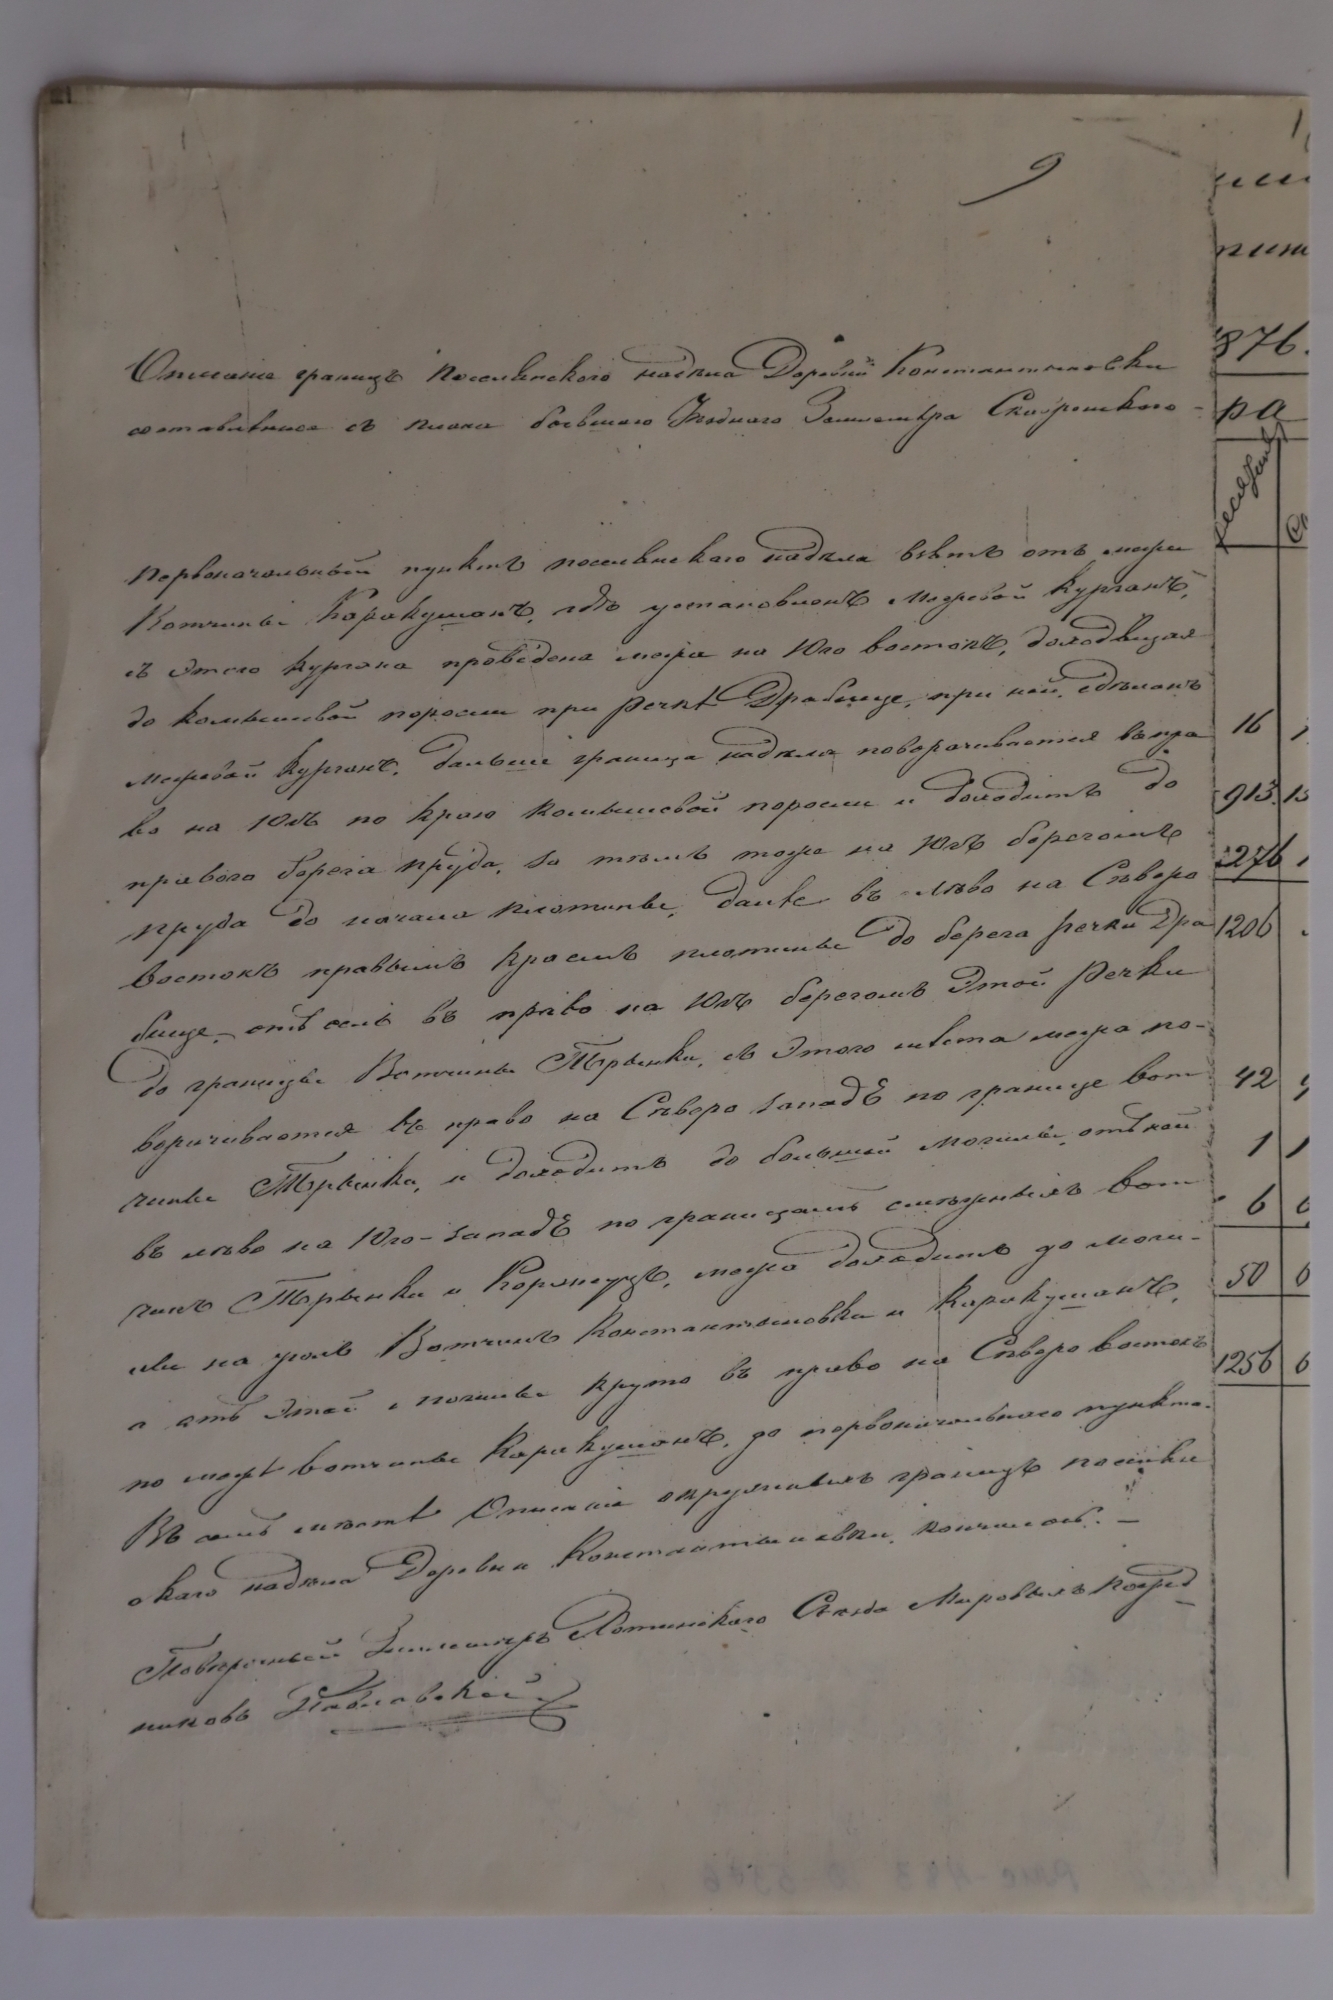 9
Описаніе границъ поселянского надѣла Деревни Константыновки
составленное съ плана бывшаго Уѣзднаго Землемѣра
Первоначальный пунктъ поселянскаго надѣла взятъ отъ межи
Вотчины Каракушанъ, гдѣ установленъ межевой курганъ,
съ этого кургана проведена межа на Юго востокъ, доходящая
до камышевой поросли при речкѣ Драбище, при ней сдѣланъ
межевой курганъ. Дальше граница надѣла поворачивается впра
во на Югъ по краю камышевой поросли и доходитъ до
праваго берега пруда, за тѣмъ тоже на Югъ берегомъ
пруда до начала плотины, далѣе въ лѣво на Сѣверо
востокъ правымъ краемъ плотины до берега речки Дра
бище, отъ сель въ право на Югъ берегомъ этой речки
до границы Вотчины Тырынки, съ этого мѣста межа по-
ворачивается въ право на Сѣверо западъ по границе вот
чины Тырынки, и доходитъ до большой могилы, отъ ней
въ лѣво на Юго-западъ по границамъ смежныхъ вот
чинъ Тырынки и межа доходитъ до моги-
лы на уголъ Вотчинъ Константыновки и Каракушанъ,
а отъ этой могилы круто въ право на Сѣверо востокъ
по межѣ вотчины Каракушанъ, до первоначального пункта.
Въ семъ мѣстѣ Описаніе окружныхъ границъ поселян
скаго надѣла Деревни Константыновки кончилось. —
Повѣренный Землемѣръ Хотинскаго Съѣзда Мировыхъ Посред
никовъ
876.
ра
16
913
1206
42
1
6
50
1256